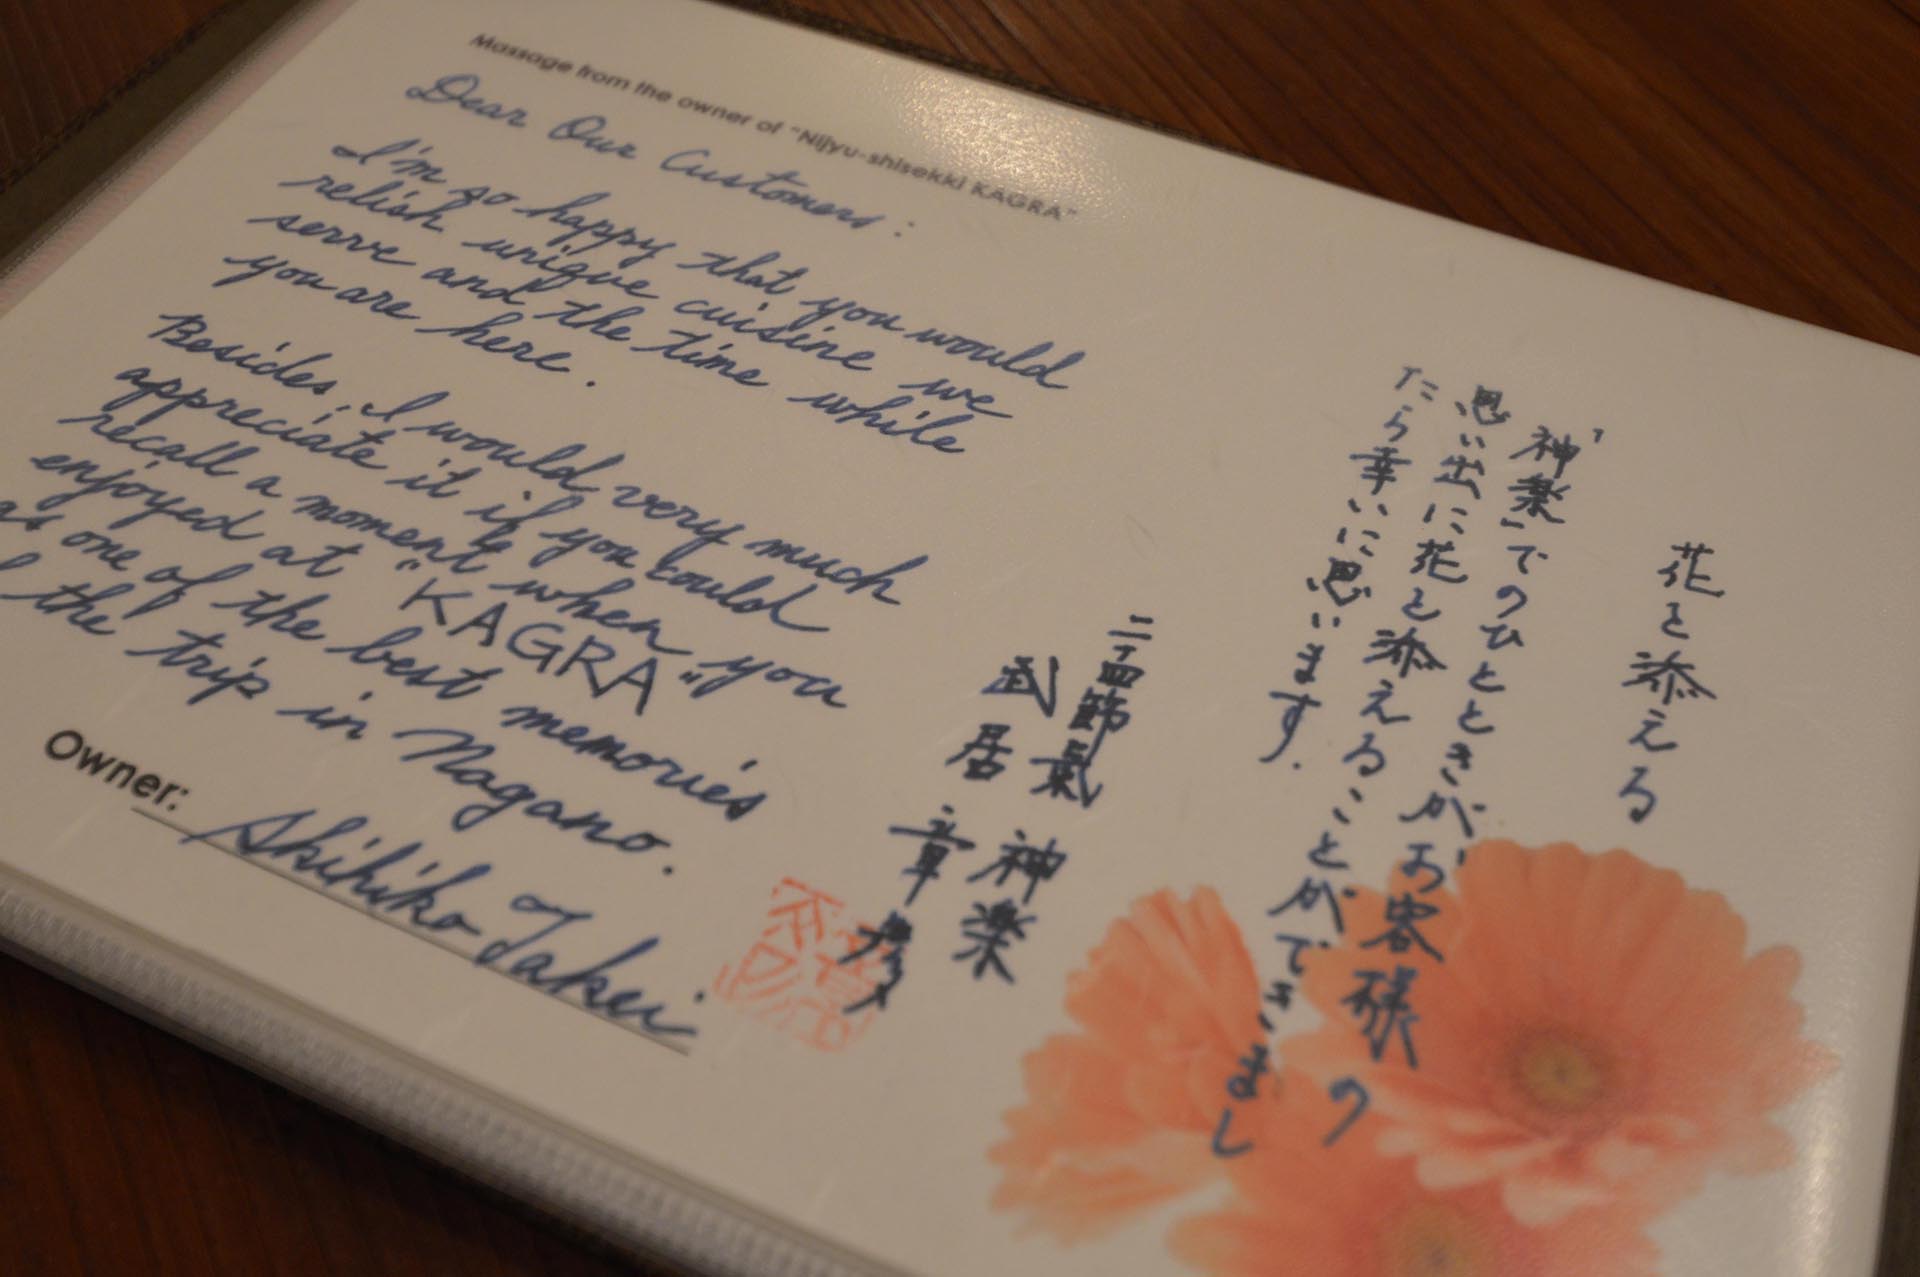 Massage from the owner of "Nijyu-shisekki KAGRA"
Dear Our Customers:
I'm so happy that you would
relish unique cuisine we
serve and the time while
you are here.
Besides, I would very much
appreciate it if you could
recall a moment when you
enjoyed at "KAGRA"
as one of the best memories
the trip in Nagano.
Owner: Akihiko Takei
花と添える
「神楽」でのひとときが、お客様の
思い出に花と添えることができまし
たら幸いに思います.
二十四節氣 神楽
武居 章彦